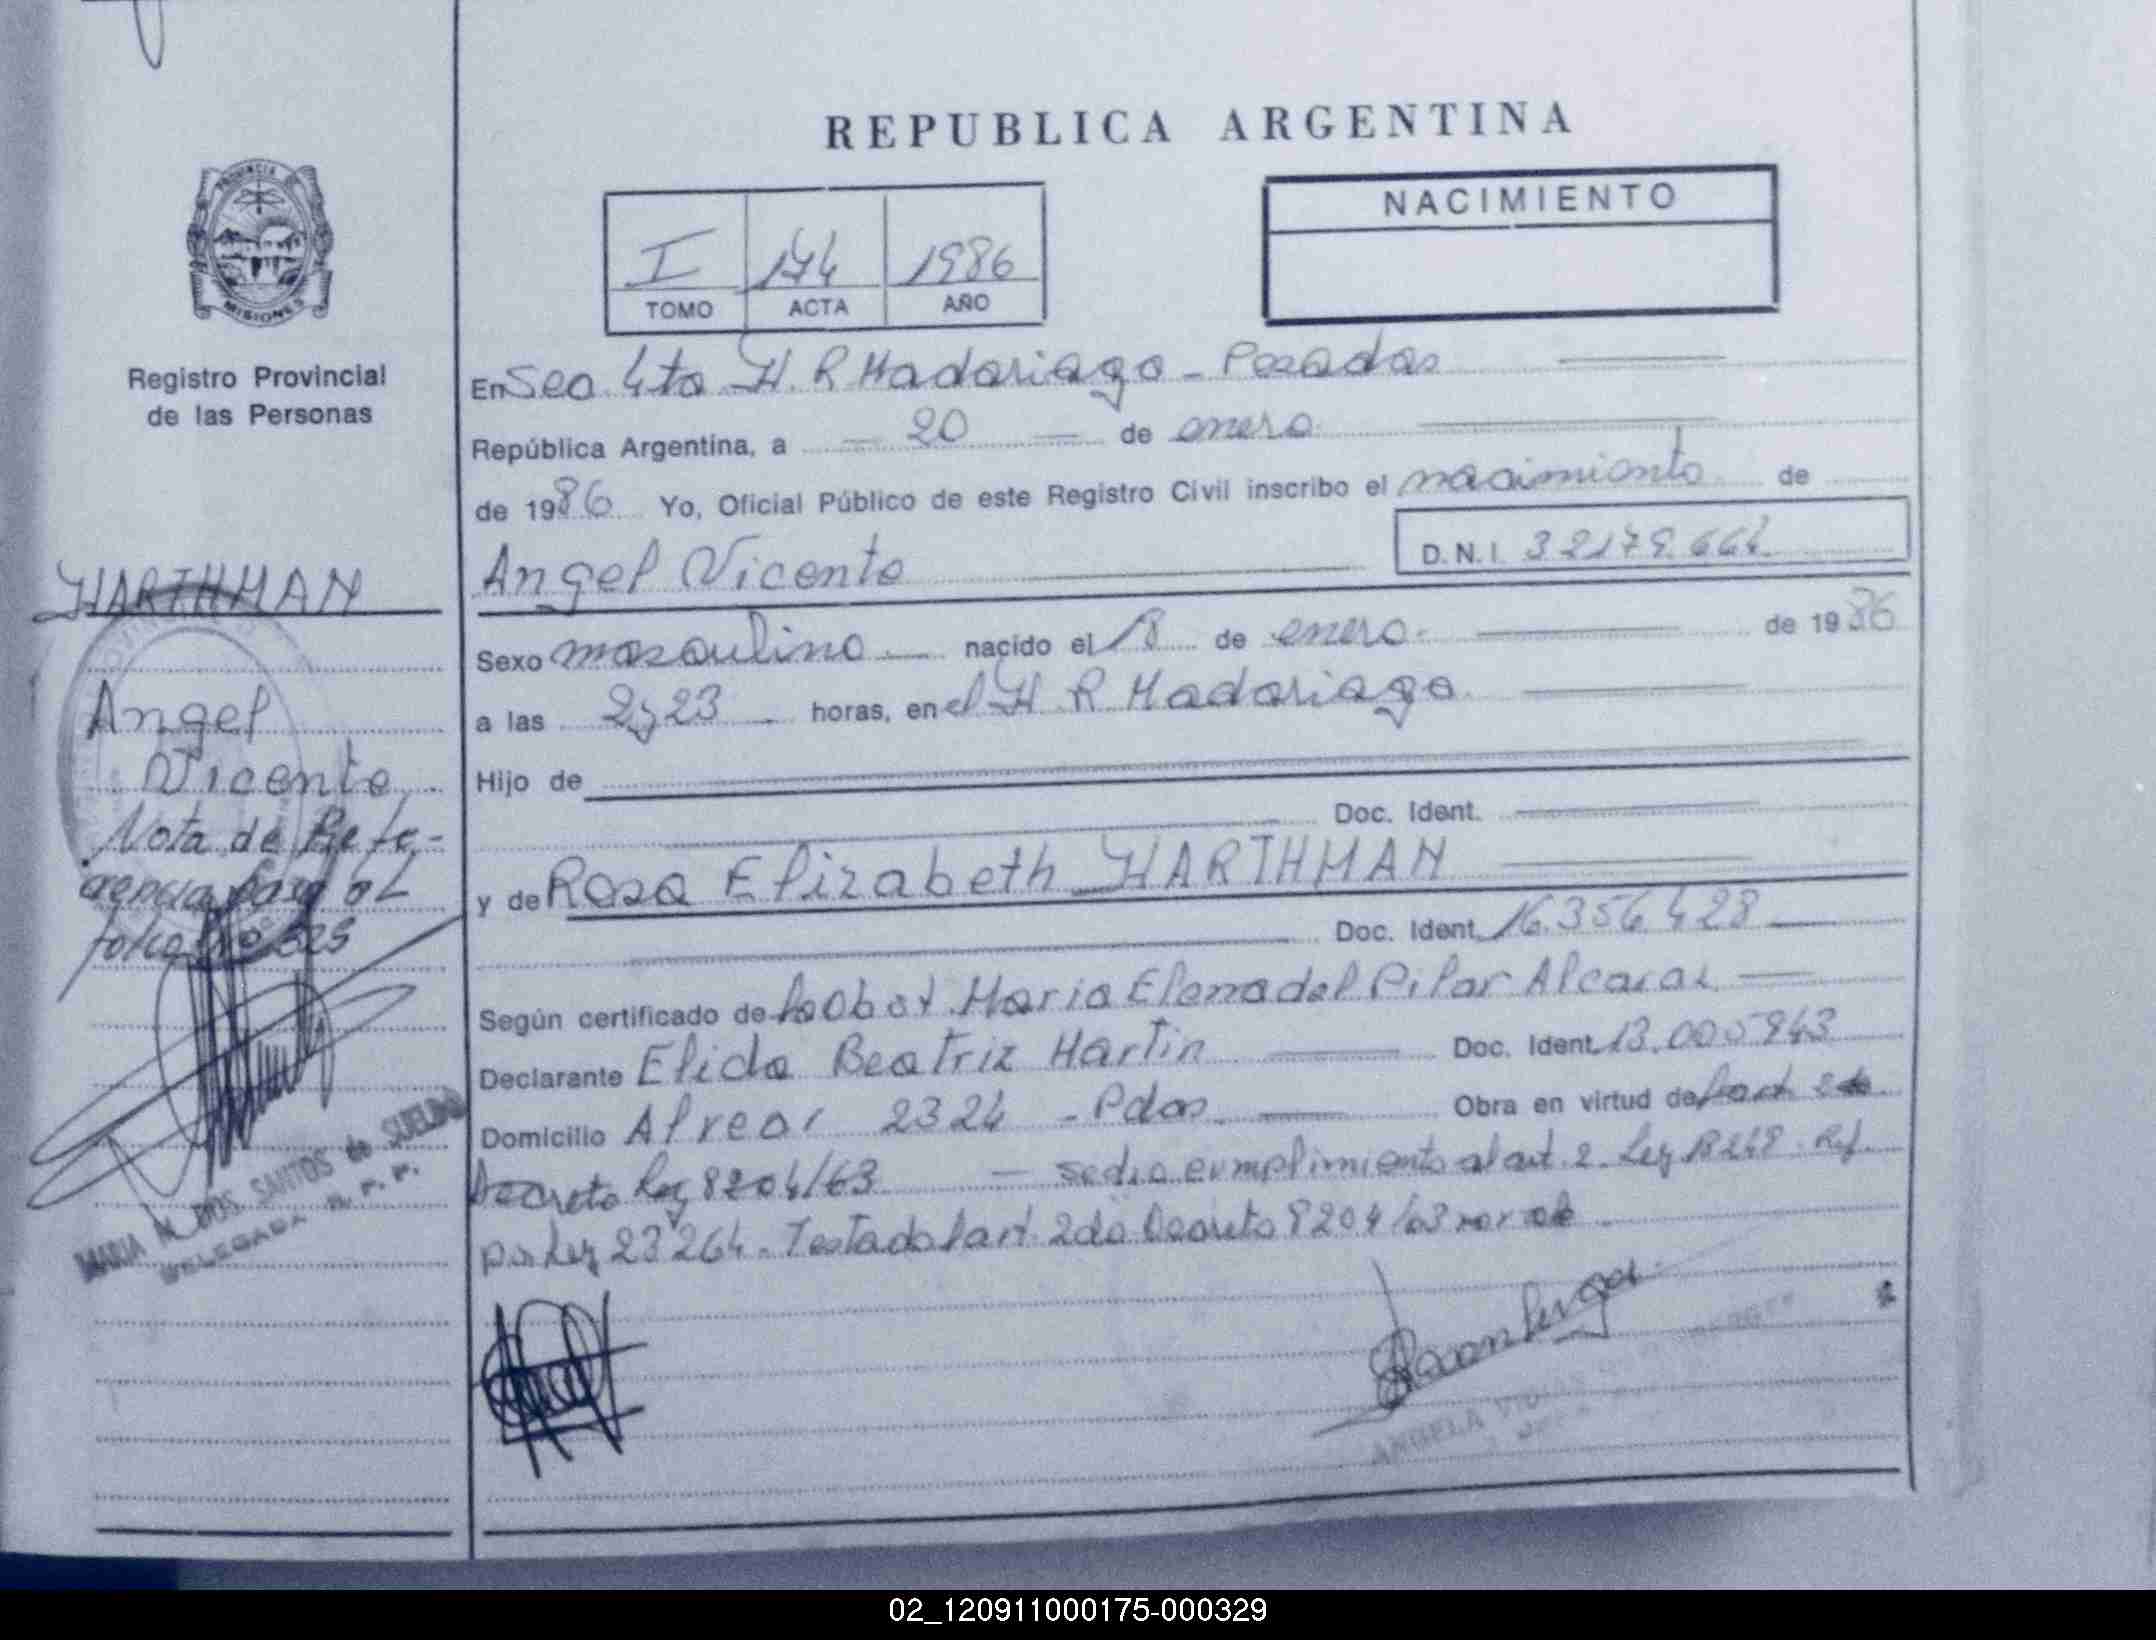 REPUBLICA ARGENTINA
PROVINCIA DE
MISIONES
Registro Provincial
de las Personas
NACIMIENTO
I 174 1986
TOMO ACTA AÑO
En Sec. 4ta H. R Madariaga - Posadas
República Argentina, a 20 de enero
de 1986 Yo, Oficial Público de este Registro Civil inscribo el nacimiento de
Angel Vicente D.N.I. 32179.664
Sexo masculino nacido el 18 de enero de 1986
a las 2y23 horas, en el H R Madariaga
Hijo de
Doc. Ident.
y de Rosa Elizabeth HARTHMAN
Doc. Ident. 16.356.428
Según certificado de la Obst. Maria Elena del Pilar Alcaraz
Declarante Elida Beatriz Martin Doc. Ident. 13.005943
Domicilio Alvear 2324 - Pdas. Obra en virtud de
Decreto Ley 8204/63 — se dio cumplimiento al art. 2. Ley 18248. Ref.
por Ley 23264. Testado art. 2do Decreto 8204/63
ANGELA
HARTHMAN
Angel
Vicente
Nota de Refe-
rencia pasa al
folio No 325
MARIA M. DOS SANTOS de SUELDO
DELEGADA R. P. P.
02_120911000175-000329